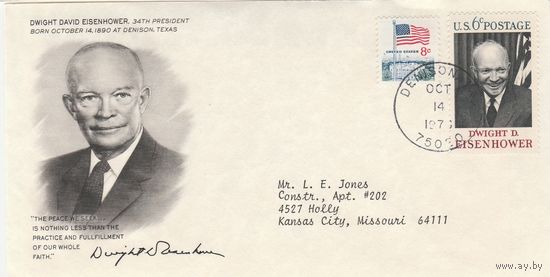 DWIGHT DAVID EISENHOWER, 34TH PRESIDENT
BORN OCTOBER 14, 1890 AT DENISON, TEXAS
UNITED STATES 8c
U.S. 6c POSTAGE
DENISON
OCT
14
DWIGHT D.
EISENHOWER
Mr. L. E. Jones
Constr., Apt. #202
4527 Holly
Kansas City, Missouri 64111
"THE PEACE WE SEEK...
IS NOTHING LESS THAN THE
PRACTICE AND FULLFILLMENT
OF OUR WHOLE
FAITH."
Dwight D Eisenhower
www.ay.by